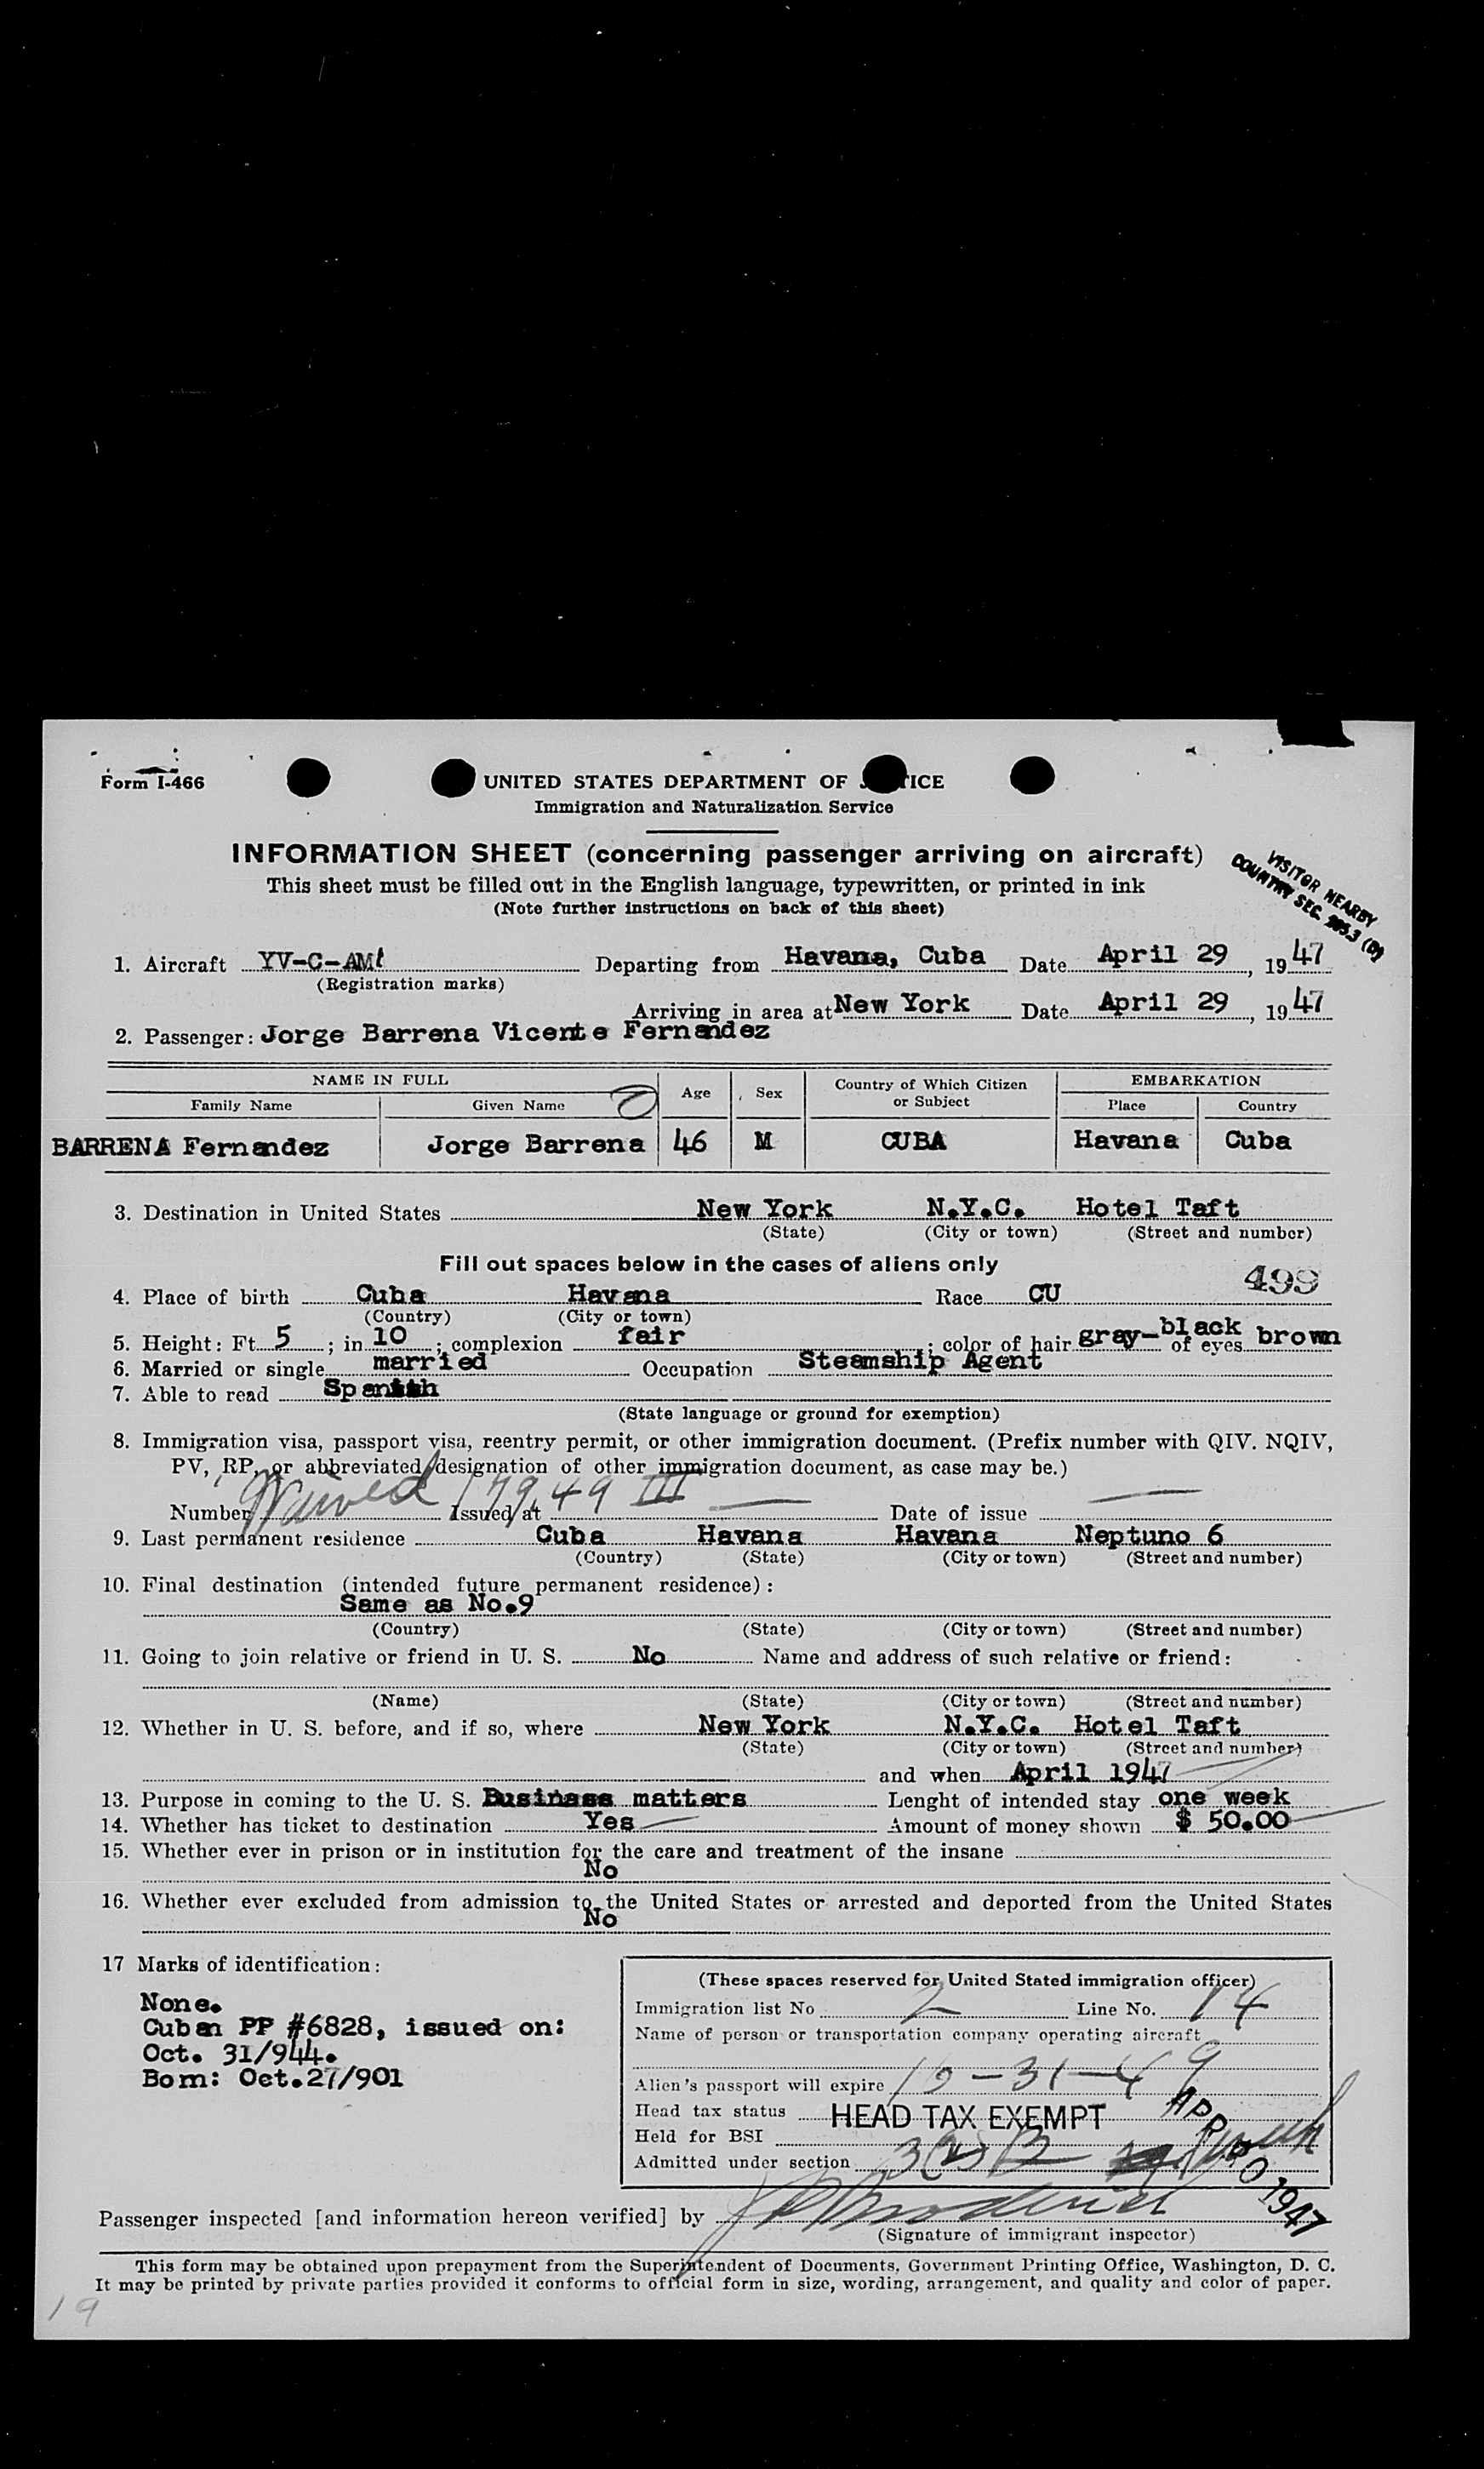 Form I-466
UNITED STATES DEPARTMENT OF J TICE
Immigration and Naturalization Service
INFORMATION SHEET (concerning passenger arriving on aircraft)
This sheet must be filled out in the English language, typewritten, or printed in ink
(Note further instructions on back of this sheet)
VISITOR NEARBY
COUNTRY SEC.
1. Aircraft YV-C-AM Departing from Havana, Cuba Date April 29, 1947
(Registration marks)
Arriving in area at New York Date April 29, 1947
2. Passenger: Jorge Barrena Vicente Fernandez
NAME IN FULL Age Sex Country of Which Citizen or Subject EMBARKATION
Family Name Given Name Place Country
BARRENA Fernandez Jorge Barrena 46 M CUBA Havana Cuba
3. Destination in United States New York N.Y.C. Hotel Taft
(State) (City or town) (Street and number)
Fill out spaces below in the cases of aliens only
499
4. Place of birth Cuba Havana Race CU
(Country) (City or town)
5. Height: Ft. 5; in 10; complexion fair; color of hair gray-black of eyes brown
6. Married or single married Occupation Steamship Agent
7. Able to read Spanish
(State language or ground for exemption)
8. Immigration visa, passport visa, reentry permit, or other immigration document. (Prefix number with QIV. NQIV,
PV, RP, or abbreviated designation of other immigration document, as case may be.)
Number Waived Issued at Date of issue
9. Last permanent residence Cuba Havana Havana Neptuno 6
(Country) (State) (City or town) (Street and number)
10. Final destination (intended future permanent residence):
Same as No.9
(Country) (State) (City or town) (Street and number)
11. Going to join relative or friend in U. S. No Name and address of such relative or friend:
(Name) (State) (City or town) (Street and number)
12. Whether in U. S. before, and if so, where New York N.Y.C. Hotel Taft
(State) (City or town) (Street and number)
and when April 1947
13. Purpose in coming to the U. S. Business matters Lenght of intended stay one week
14. Whether has ticket to destination Yes Amount of money shown $ 50.00
15. Whether ever in prison or in institution for the care and treatment of the insane
No
16. Whether ever excluded from admission to the United States or arrested and deported from the United States
No
17 Marks of identification:
None.
Cuban PP #6828, issued on:
Oct. 31/944.
Born: Oct.27/901
(These spaces reserved for United Stated immigration officer)
Immigration list No 2 Line No. 14
Name of person or transportation company operating aircraft
Alien's passport will expire 10-31-49
Head tax status HEAD TAX EXEMPT
Held for BSI
Admitted under section 3(2)
APR 30 1947
Passenger inspected [and information hereon verified] by
(Signature of immigrant inspector)
This form may be obtained upon prepayment from the Superintendent of Documents, Government Printing Office, Washington, D. C.
It may be printed by private parties provided it conforms to official form in size, wording, arrangement, and quality and color of paper.
19